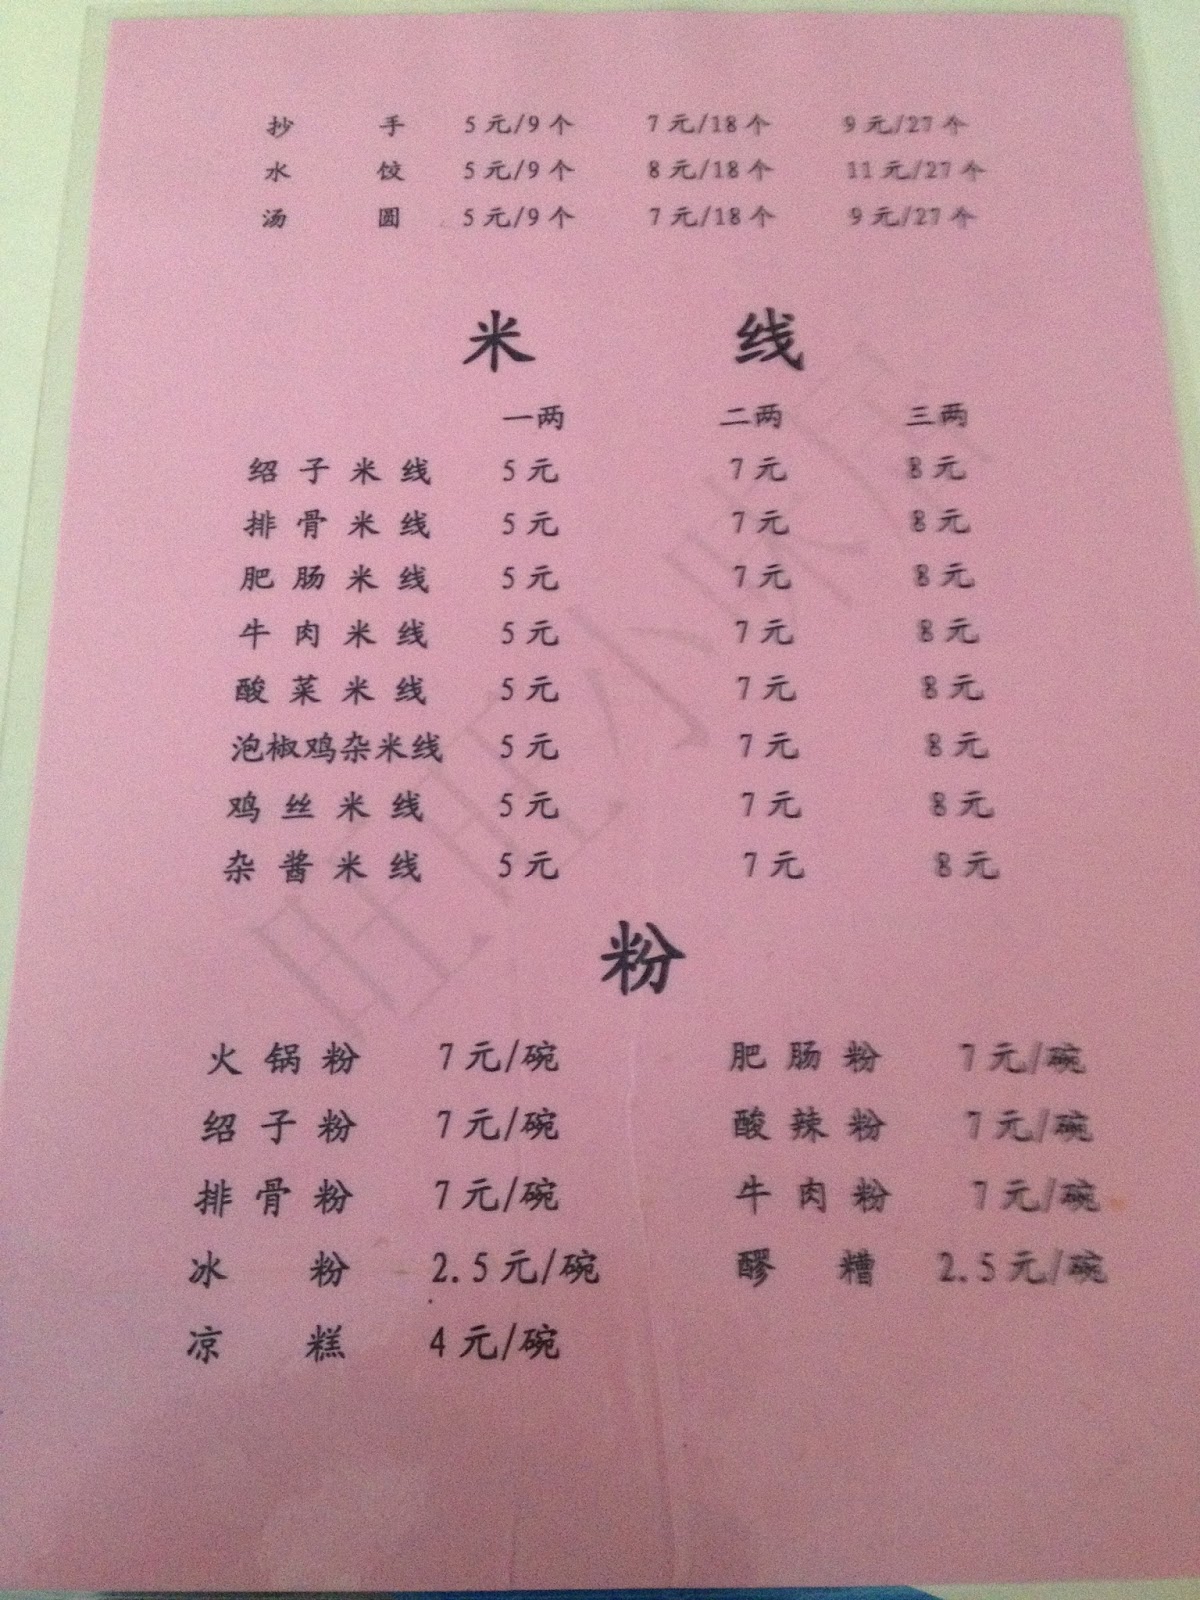 抄手 5元/9个 7元/18个 9元/27个
水饺 5元/9个 8元/18个 11元/27个
汤圆 5元/9个 7元/18个 9元/27个
米线
一两 二两 三两
绍子米线 5元 7元 8元
排骨米线 5元 7元 8元
肥肠米线 5元 7元 8元
牛肉米线 5元 7元 8元
酸菜米线 5元 7元 8元
泡椒鸡杂米线 5元 7元 8元
鸡丝米线 5元 7元 8元
杂酱米线 5元 7元 8元
粉
火锅粉 7元/碗 肥肠粉 7元/碗
绍子粉 7元/碗 酸辣粉 7元/碗
排骨粉 7元/碗 牛肉粉 7元/碗
冰粉 2.5元/碗 醪糟 2.5元/碗
凉糕 4元/碗
旺旺小吃店